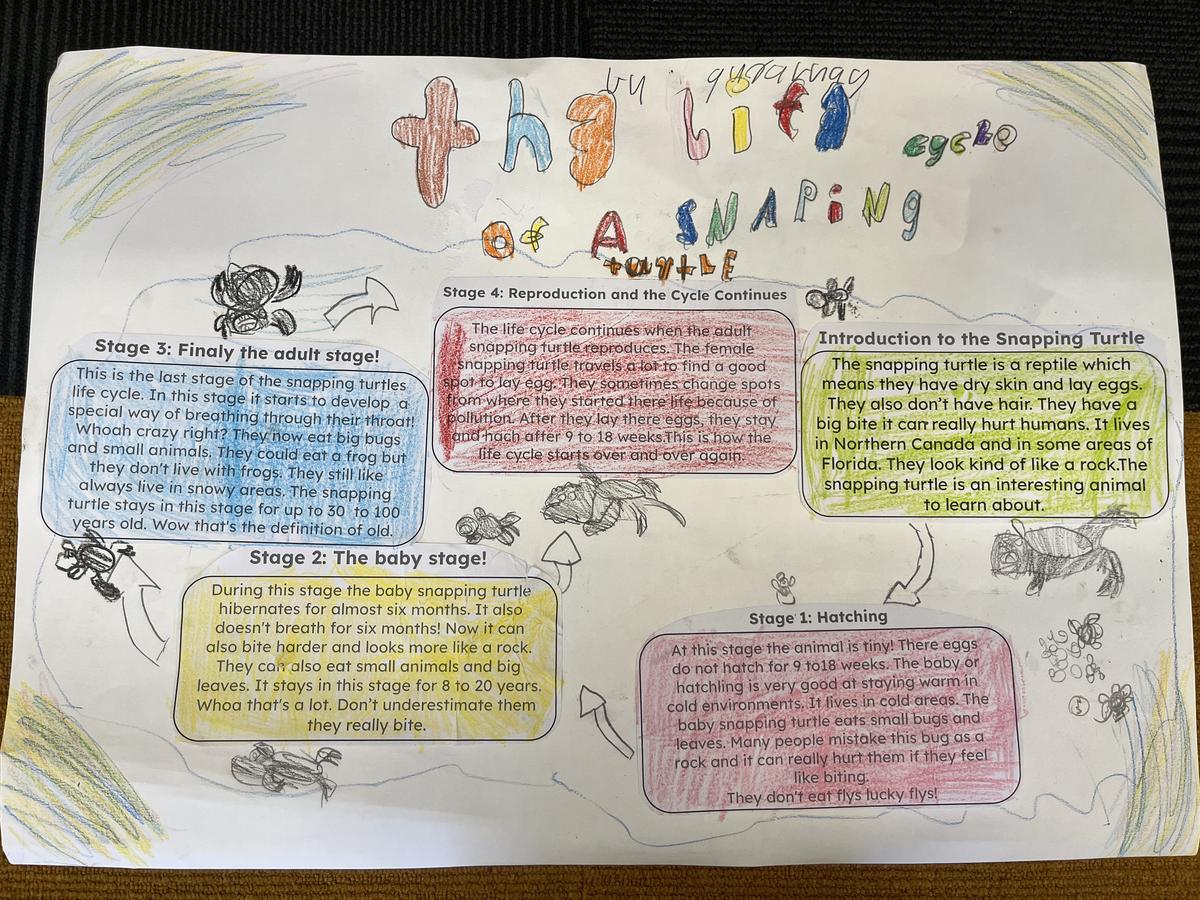 the life cycle
of A SNAPiNg
turtLE
Introduction to the Snapping Turtle
The snapping turtle is a reptile which
means they have dry skin and lay eggs.
They also don't have hair. They have a
big bite it can really hurt humans. It lives
in Northern Canada and in some areas of
Florida. They look kind of like a rock.The
snapping turtle is an interesting animal
to learn about.
Stage 1: Hatching
At this stage the animal is tiny! There eggs
do not hatch for 9 to18 weeks. The baby or
hatchling is very good at staying warm in
cold environments. It lives in cold areas. The
baby snapping turtle eats small bugs and
leaves. Many people mistake this bug as a
rock and it can really hurt them if they feel
like biting.
They don't eat flys lucky flys!
Stage 2: The baby stage!
During this stage the baby snapping turtle
hibernates for almost six months. It also
doesn't breath for six months! Now it can
also bite harder and looks more like a rock.
They can also eat small animals and big
leaves. It stays in this stage for 8 to 20 years.
Whoa that's a lot. Don't underestimate them
they really bite.
Stage 3: Finaly the adult stage!
This is the last stage of the snapping turtles
life cycle. In this stage it starts to develop a
special way of breathing through their throat!
Whoah crazy right? They now eat big bugs
and small animals. They could eat a frog but
they don't live with frogs. They still like
always live in snowy areas. The snapping
turtle stays in this stage for up to 30 to 100
years old. Wow that's the definition of old.
Stage 4: Reproduction and the Cycle Continues
The life cycle continues when the adult
snapping turtle reproduces. The female
snapping turtle travels a lot to find a good
spot to lay egg. They sometimes change spots
from where they started there life because of
pollution. After they lay there eggs, they stay
and hach after 9 to 18 weeks.This is how the
life cycle starts over and over again.